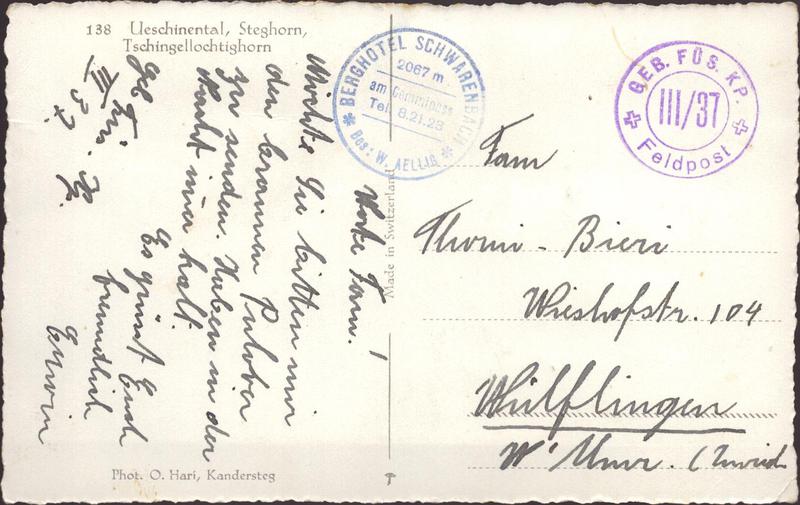 138 Ueschinental, Steghorn,
Tschingellochtighorn
BERGHOTEL SCHWARENBACH
2067 m.
am Gemmipass
Tel. 8.21.23
Bes: W. AELLIG
GEB. FÜS. KP.
III/37
Feldpost
Werte Fam.!
Möchte Sie bitten mir
den braunen Pulover
zu senden. Haben in der
Nacht immer kalt.
Es grüsst Euch
freundlich
Erwin
Geb Füs. Kp.
III 37.
Made in Switzerland
Fam
Thomi-Bieri
Wieshofstr. 104
Wülflingen
W'thur. (Zürich
Phot. O. Hari, Kandersteg